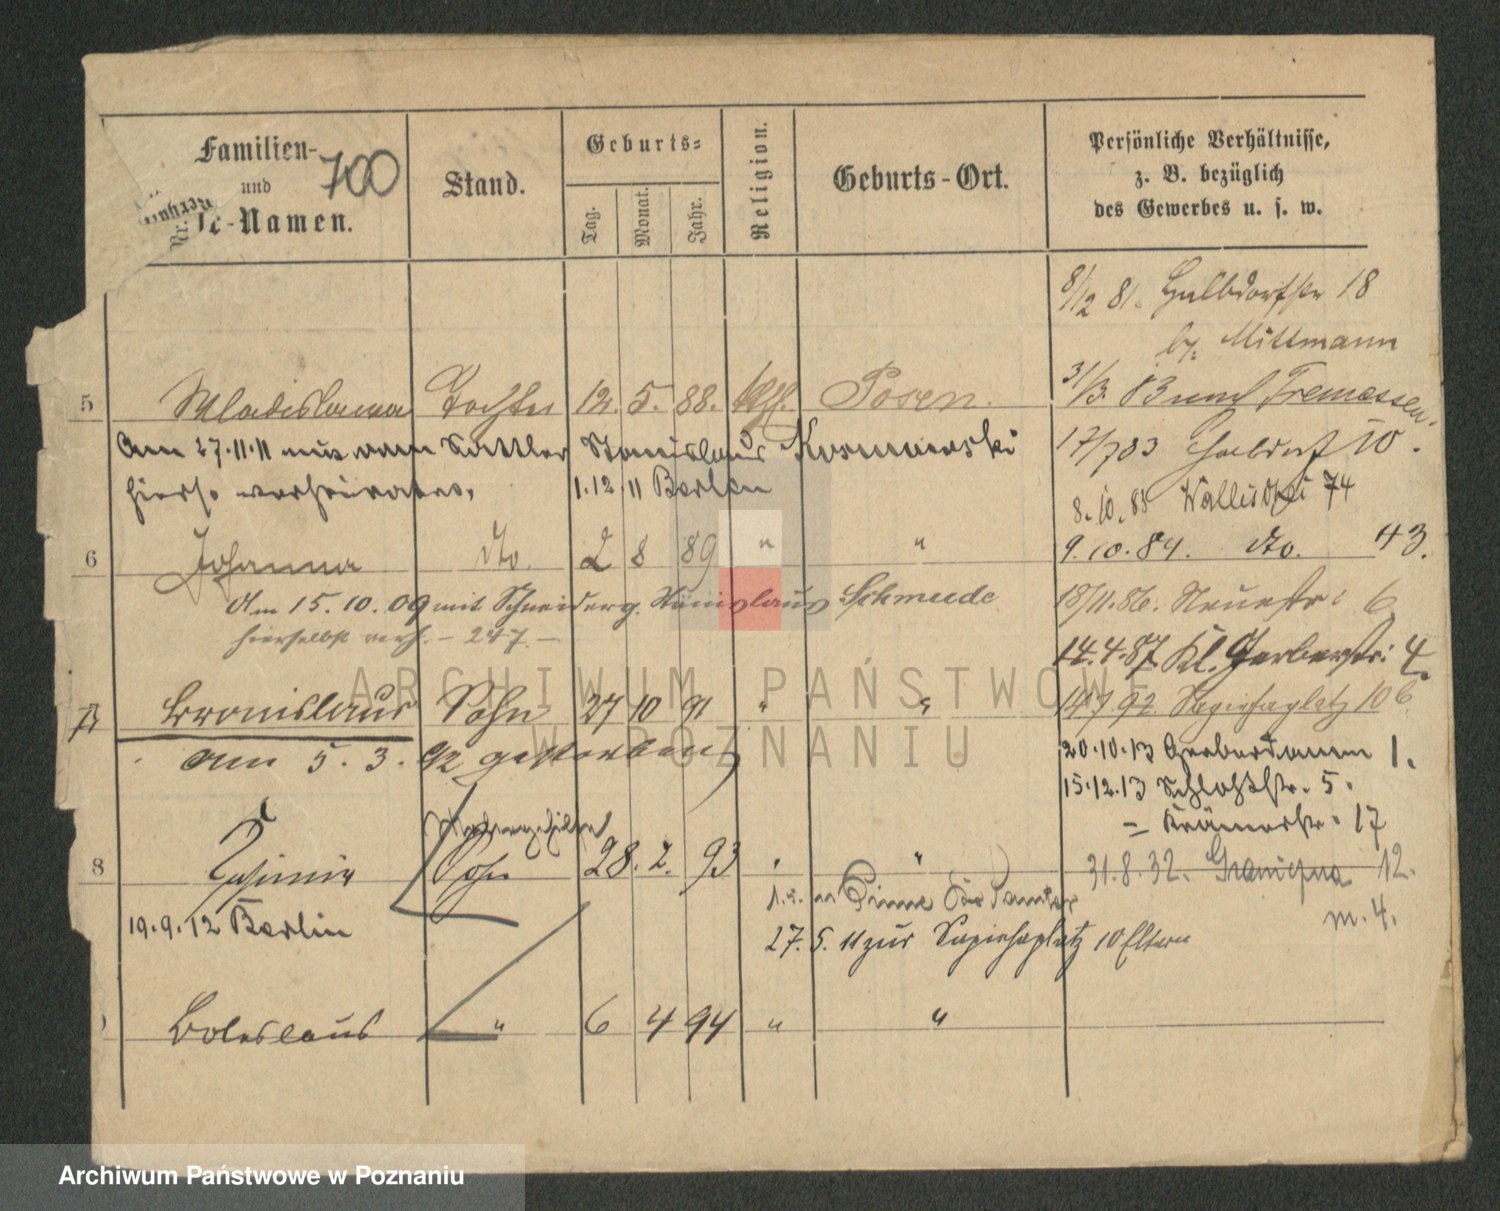 Familien- 700
und
-Namen.
Stand.
Geburts-
Tag.
Monat.
Jahr.
Religion.
Geburts-Ort.
Persönliche Verhältnisse,
z. B. bezüglich
des Gewerbes u. s. w.
Nr.
8/12 81. Halbdorfstr 18
by. Mittmann
31/3. 83 nach Tremessen.
5 Wladislawa Tochter 12. 5. 88. kath. Posen.
17/7 83 Halbdorf 10.
Am 27.11.11 mit dem Sattler Stanislaus
hiers. verheiratet. 1.12.11 Berlin
8.10.83 Wallischei 74
6 Johanna dto. 2 8 89 " "
9.10.84. dto. 43.
Am 15.10.09 mit Schneiderg. Stanislaus Schmeede
hierselbst verh. - 247 -
18/11.86. Neuestr: 6
14.4.87. Kl. Gerberstr: 4.
7 Bronislaus Sohn 27 10 91 " "
14/7 92 Sapiehaplatz 10b
am 5.3.92 gestorben
20.10.13 Gerberdamm 1.
15.12.13 Schloßstr. 5.
= Krämerstr. 17
8 Kasimir Sohn 28. 2. 93 " "
31.8.32. Graniczna 12.
m. 4.
19.9.12 Berlin
in Pinne
27.5.11 zur Sapiehaplatz 10 Eltern
Boleslaus " 6 4 94 " "
ARCHIWUM PAŃSTWOWE
W POZNANIU
Archiwum Państwowe w Poznaniu